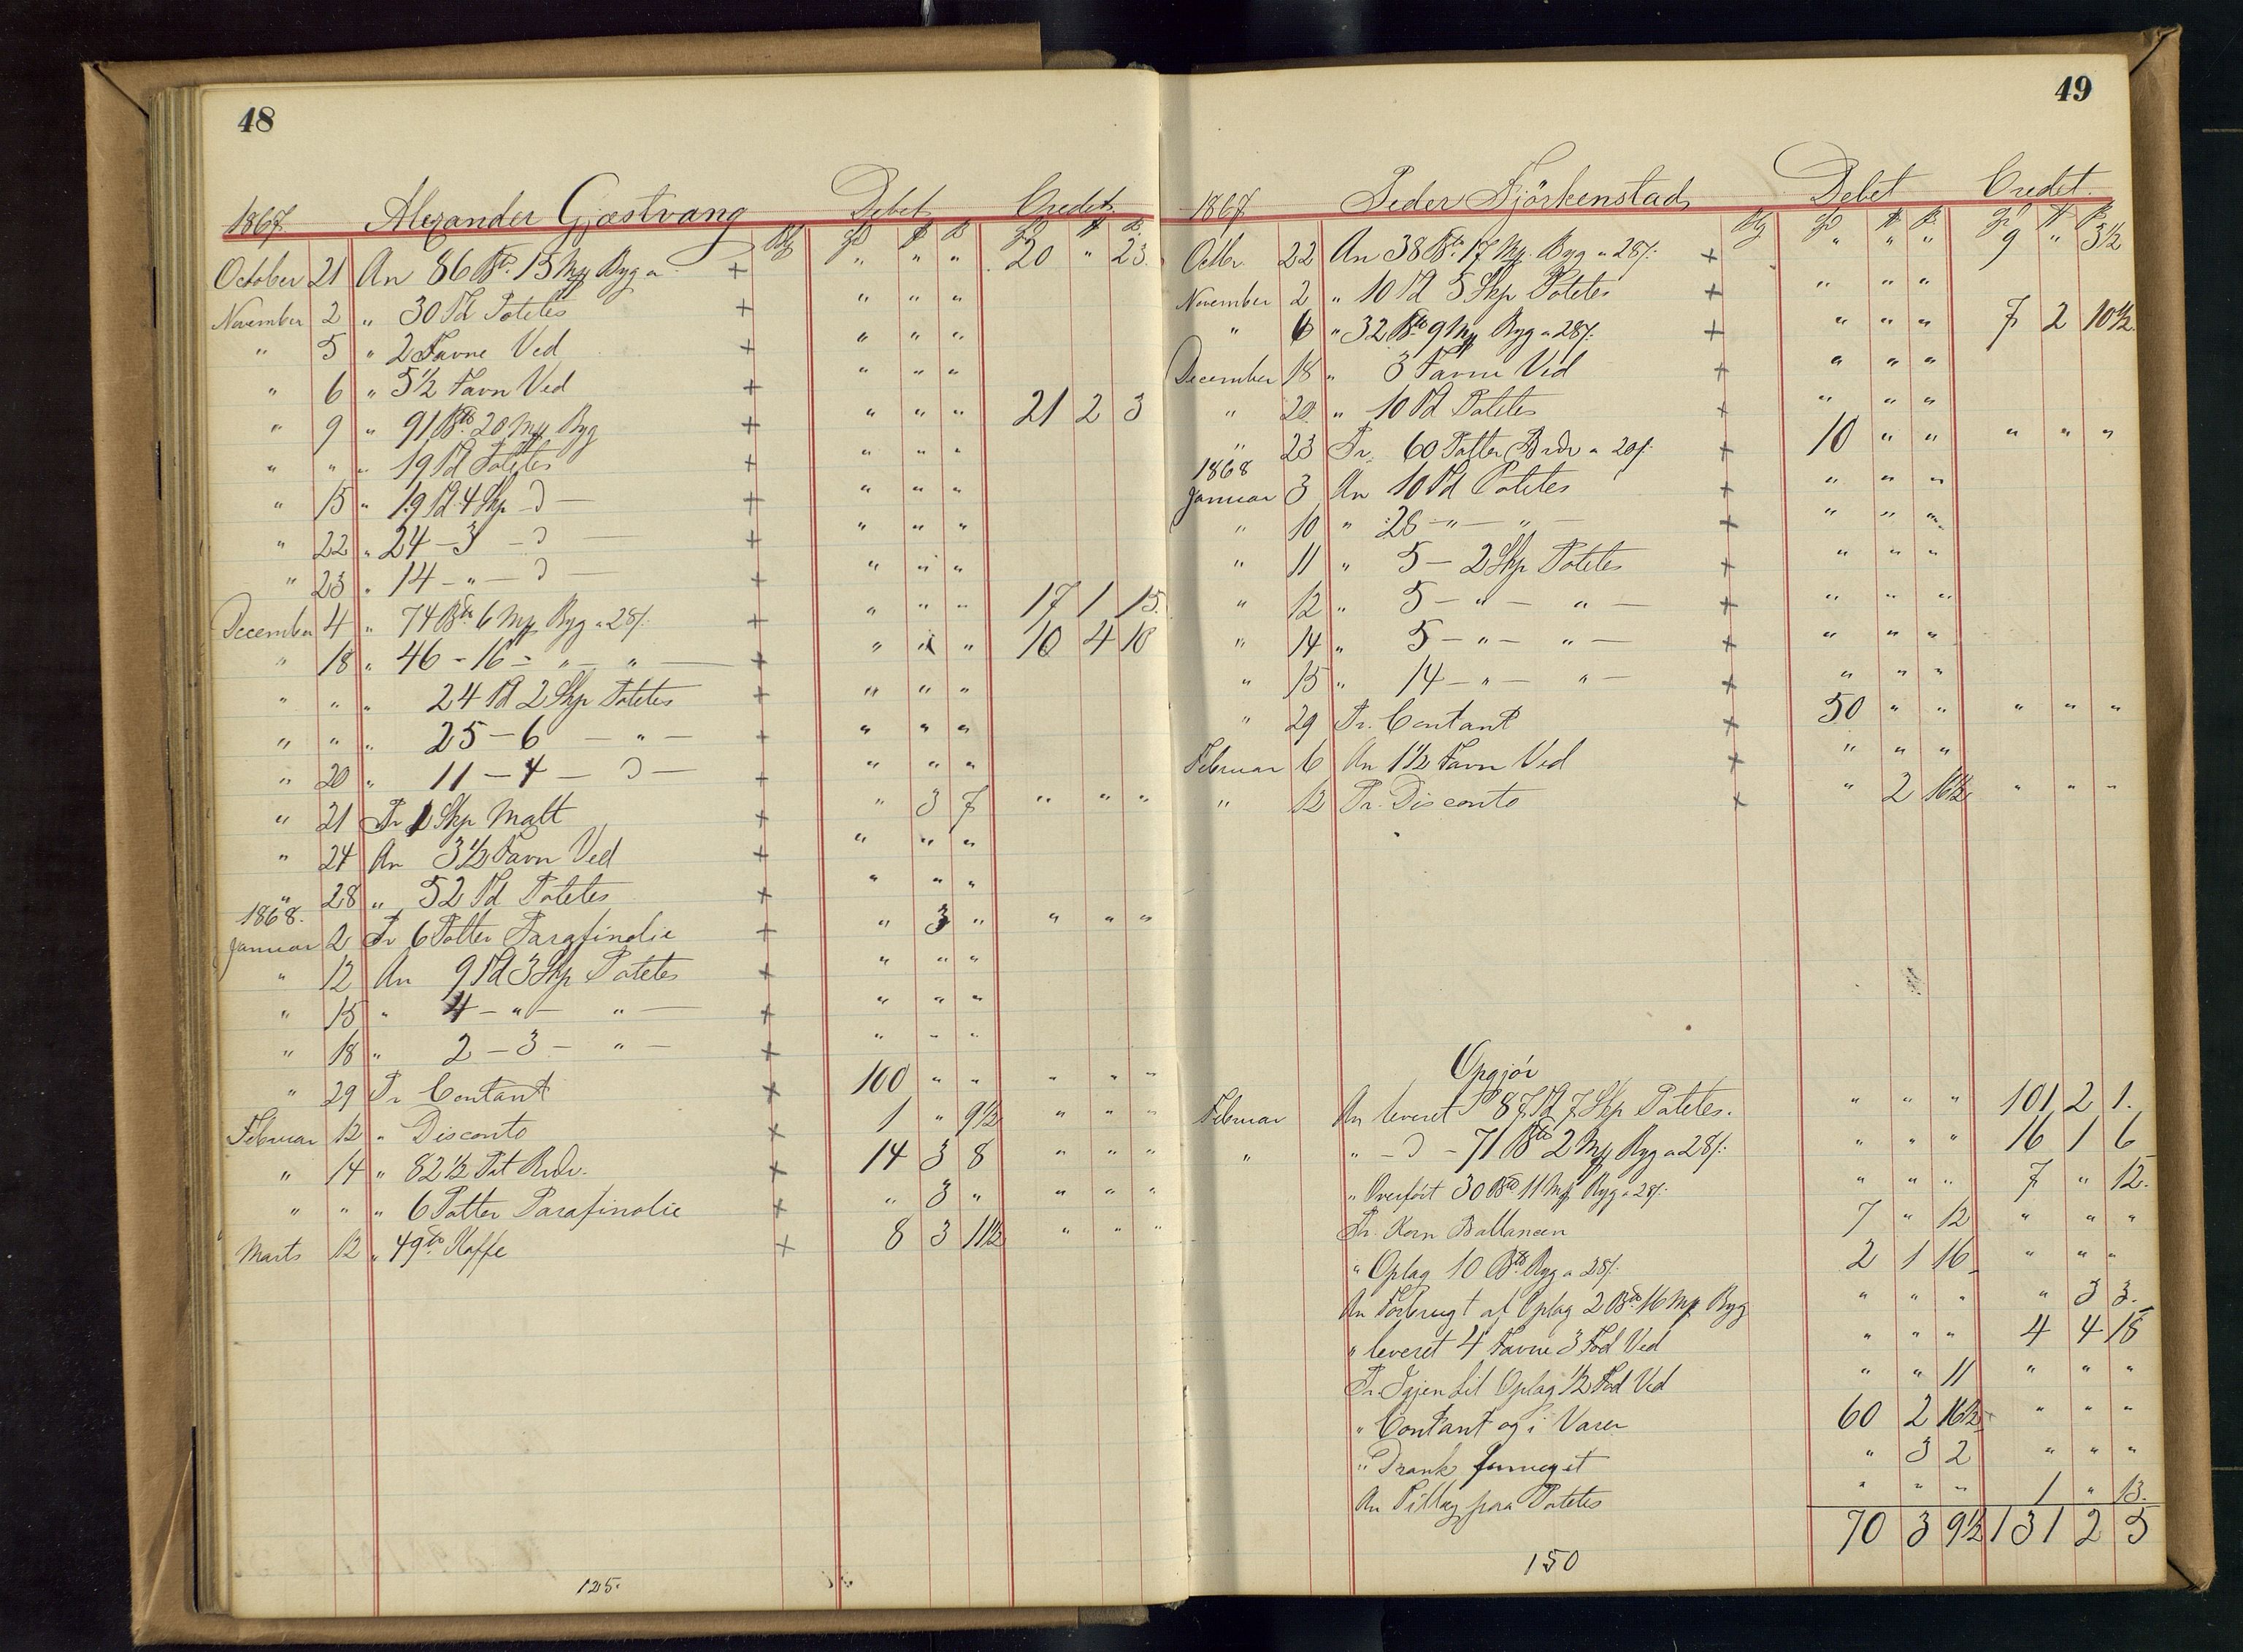 48
1867 Alexander Gjæstvang Debet Credit
October 21 An 86 Btt. 15 Mg Byg a + " " " 20 " 23
November 2 " 30 Td Potetes + " " "
" 5 " 2 Favne Ved + " " "
" 6 " 5 1/2 Favn Ved + " " "
" 9 " 91 Btt. 20 Mg Byg + " " " 21 2 3
" " " 19 Td Potetes + " " "
" 15 " 19 Td 4 Skp - D - + " " "
" 22 " 24 - 3 - D - + " " "
" 23 " 14 - " - D - + " " "
December 4 " 74 Btt. 6 Mg Byg a 28/: + " " " 17 1 15
" 18 " 46 - 16 - " - " - + " " " 10 4 10
" " " 24 Td 2 Skp Potetes + " " "
" " " 25 - 6 - " - + " " "
" 20 " 11 - 4 - D - + " " "
" 21 Pr 1 Skp Malt + " 3 7 " " "
" 24 An 3 1/2 Favn Ved + " " "
" 28 " 52 Td Potetes + " " "
1868.
Januar 2 Pr 6 Potter Parafinolie + " 3 " " " "
" 12 An 9 Td 3 Skp Potetes + " " "
" 15 " 4 - " - " - + " " "
" 18 " 2 - 3 - " - + " " "
" 29 Pr Contant + 100 " " " " "
Februar 12 " Disconto + 1 " 9 1/2 " " "
" 14 " 82 1/2 Pot Brdv. + 14 3 8 " " "
" " " 6 Potter Parafinolie + " 3 " " " "
Marts 12 " 49 Kaffe + 8 3 11 1/2 " " "
125.
49
1867 Peder Fjörkenstad Debet Credit.
Octbr. 22 An 38 Btt. 17 Mg. Byg a 28/: + " " " 9 " 3 1/2
November 2 " 10 Td 5 Skp Potetes + " " "
" 6 " 32 Btt 9 Mg Byg a 28/: + " " " 7 2 10 1/2
December 18 " 3 Favne Ved + " " "
" 20 " 10 Td Potetes + " " "
" 23 Pr. 60 Potter Brdv a 20/: + 10 " " " " "
1868
Januar 3 An 10 Td Potetes + " " "
" 10 " 28 - " - " - + " " "
" 11 " 5 - 2 Skp Potetes + " " "
" 12 " 5 - " - " - + " " "
" 14 " 5 - " - " - + " " "
" 15 " 14 - " - " - + " " "
" 29 Pr. Contant + 50 " " " " "
Februar 6 An 1 1/2 Favn Ved + " " "
" 12 Pr. Disconto + " 2 16 1/2 " " "
Opgjör
Februar An leveret 87 Td 7 Skp Potetes. " " " 101 2 1.
" " - D - 71 Btt 2 Mg Byg a 28/: " " " 16 1 6
" Overfört 30 Btt 11 Mg Byg a 28/: " " " 7 " 12.
Pr. Korn Ballancen 7 " 12 " " "
" Oplag 10 Btt. Byg a 28/: 2 1 16 " " "
An Forbrugt af Oplag 2 Btt 16 Mg Byg " " " " 3 3.
" leveret 4 Favne 3 Fod Ved " " " 4 4 18
Pr. Igjen til Oplag 1/2 Fod Ved " " 11 " " "
" Contant og i Varer 60 2 16 1/2 " " "
" Drank " 3 2 " " "
An Tillæg paa Potetes " " " 1 " 13.
70 3 9 1/2 131 2 5
150